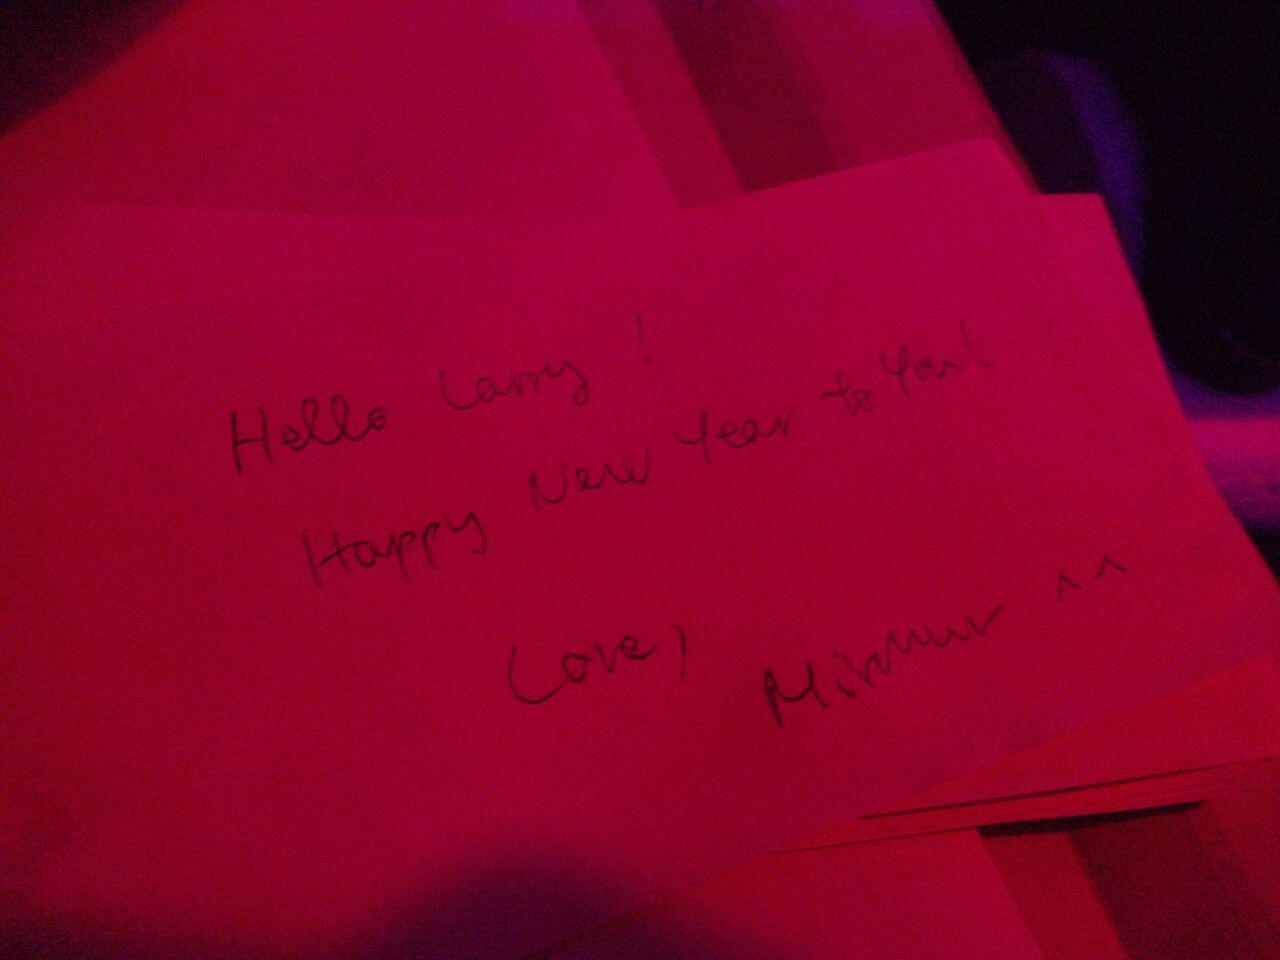 Hello Larry!
Happy New Year to You!
Love,
^^